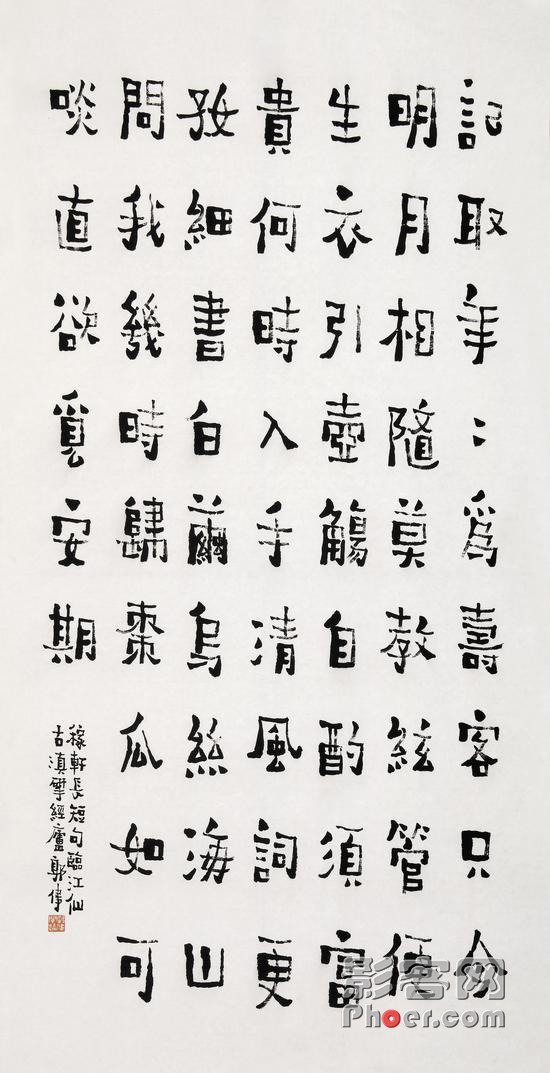 記取年〻爲壽客只今
明月相隨莫教絃管便
生衣引壺觴自酌須富
貴何時入手清風詞更
好細書白繭烏絲海山
問我幾時歸棗瓜如可
啖直欲覓安期
稼軒長短句臨江仙
古滇經廬郭偉
影客网
Phoer.com